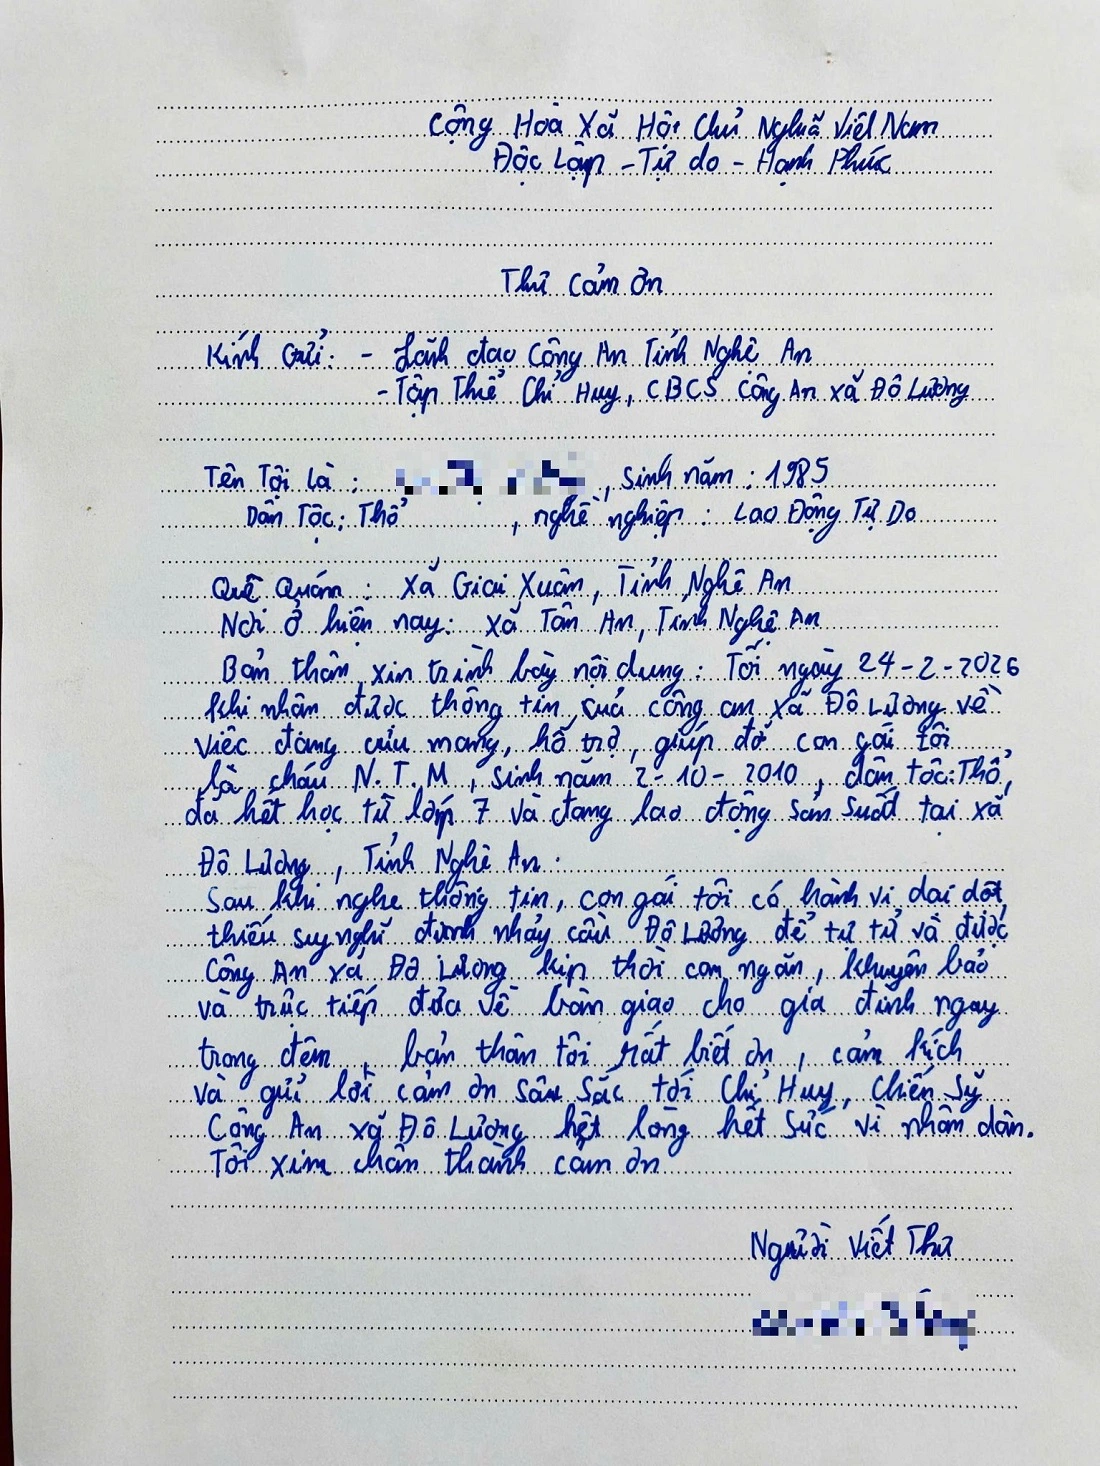 Cộng Hoà Xã Hội Chủ Nghĩa Việt Nam
Độc Lập - Tự do - Hạnh Phúc
Thư cảm ơn
Kính Gửi: - Lãnh đạo Công An Tỉnh Nghệ An
- Tập Thể Chỉ Huy, CBCS Công An xã Đô Lương
Tên Tôi là : , Sinh năm : 1985
Dân Tộc: Thổ , nghề nghiệp : Lao Động Tự Do
Quê Quán : Xã Giai Xuân, Tỉnh Nghệ An
Nơi Ở hiện nay: xã Tân An, Tỉnh Nghệ An
Bản thân xin trình bày nội dung : Tối ngày 24-2-2026
khi nhận được thông tin của công an xã Đô Lương về
việc đang cưu mang, hỗ trợ, giúp đỡ con gái tôi
là cháu N.T.M, sinh năm 2-10-2010, dân tộc: Thổ,
đã hết học từ lớp 7 và đang lao động sản suất tại xã
Đô Lương, Tỉnh Nghệ An.
Sau khi nghe thông tin, con gái tôi có hành vi dại dột,
thiếu suy nghĩ định nhảy cầu Đô Lương để tự tử và được
Công An xã Đô Lương kịp thời can ngăn, khuyên bảo
và trực tiếp đưa về bàn giao cho gia đình ngay
trong đêm, bản thân tôi rất biết ơn, cảm kích
và gửi lời cảm ơn sâu sắc tới Chỉ Huy, chiến sỹ
Công An xã Đô Lương hết lòng hết sức vì nhân dân.
Tôi xin chân thành cảm ơn
Người viết Thư